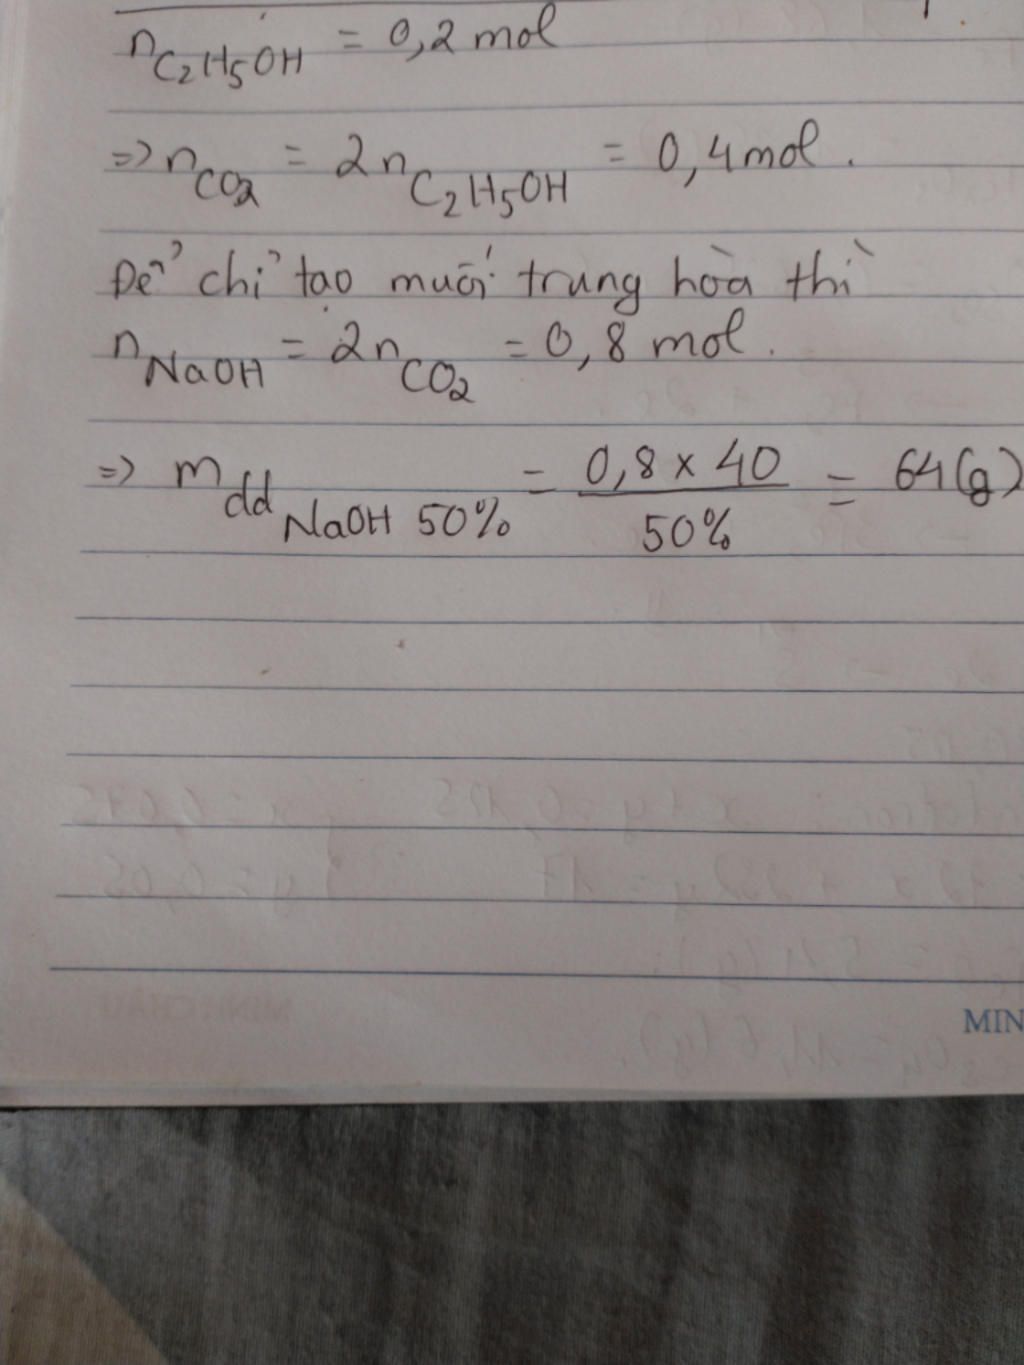 nC2H5OH = 0,2 mol
=> nCO2 = 2nC2H5OH = 0,4 mol.
Để chỉ tạo muối trung hòa thì
nNaOH = 2nCO2 = 0,8 mol.
=> mdd NaOH 50% = 0,8 x 40 / 50% = 64(g)
MIN